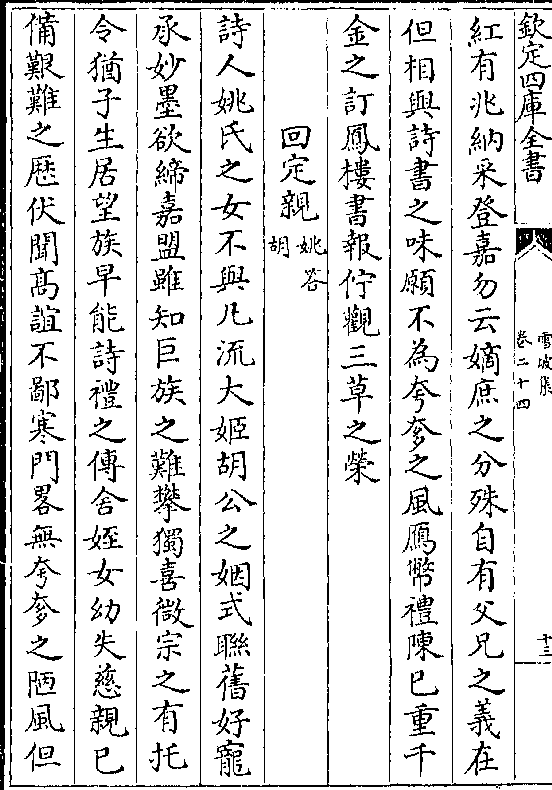 欽定四庫全書
雪坡集
卷二十四
十三
紅有兆納采登嘉勿云嫡庶之分殊自有父兄之義在
但相與詩書之味願不為夸奓之風鴈幣禮陳已重千
金之訂鳳樓書報佇觀三草之榮
回定親
姚答
胡
詩人姚氏之女不與凡流大姬胡公之姻式聯舊好寵
承妙墨欲締嘉盟雖知巨族之難攀獨喜微宗之有托
令猶子生居望族早能詩禮之傳舍姪女幼失慈親已
備艱難之歴伏聞高誼不鄙寒門畧無夸奓之陋風但